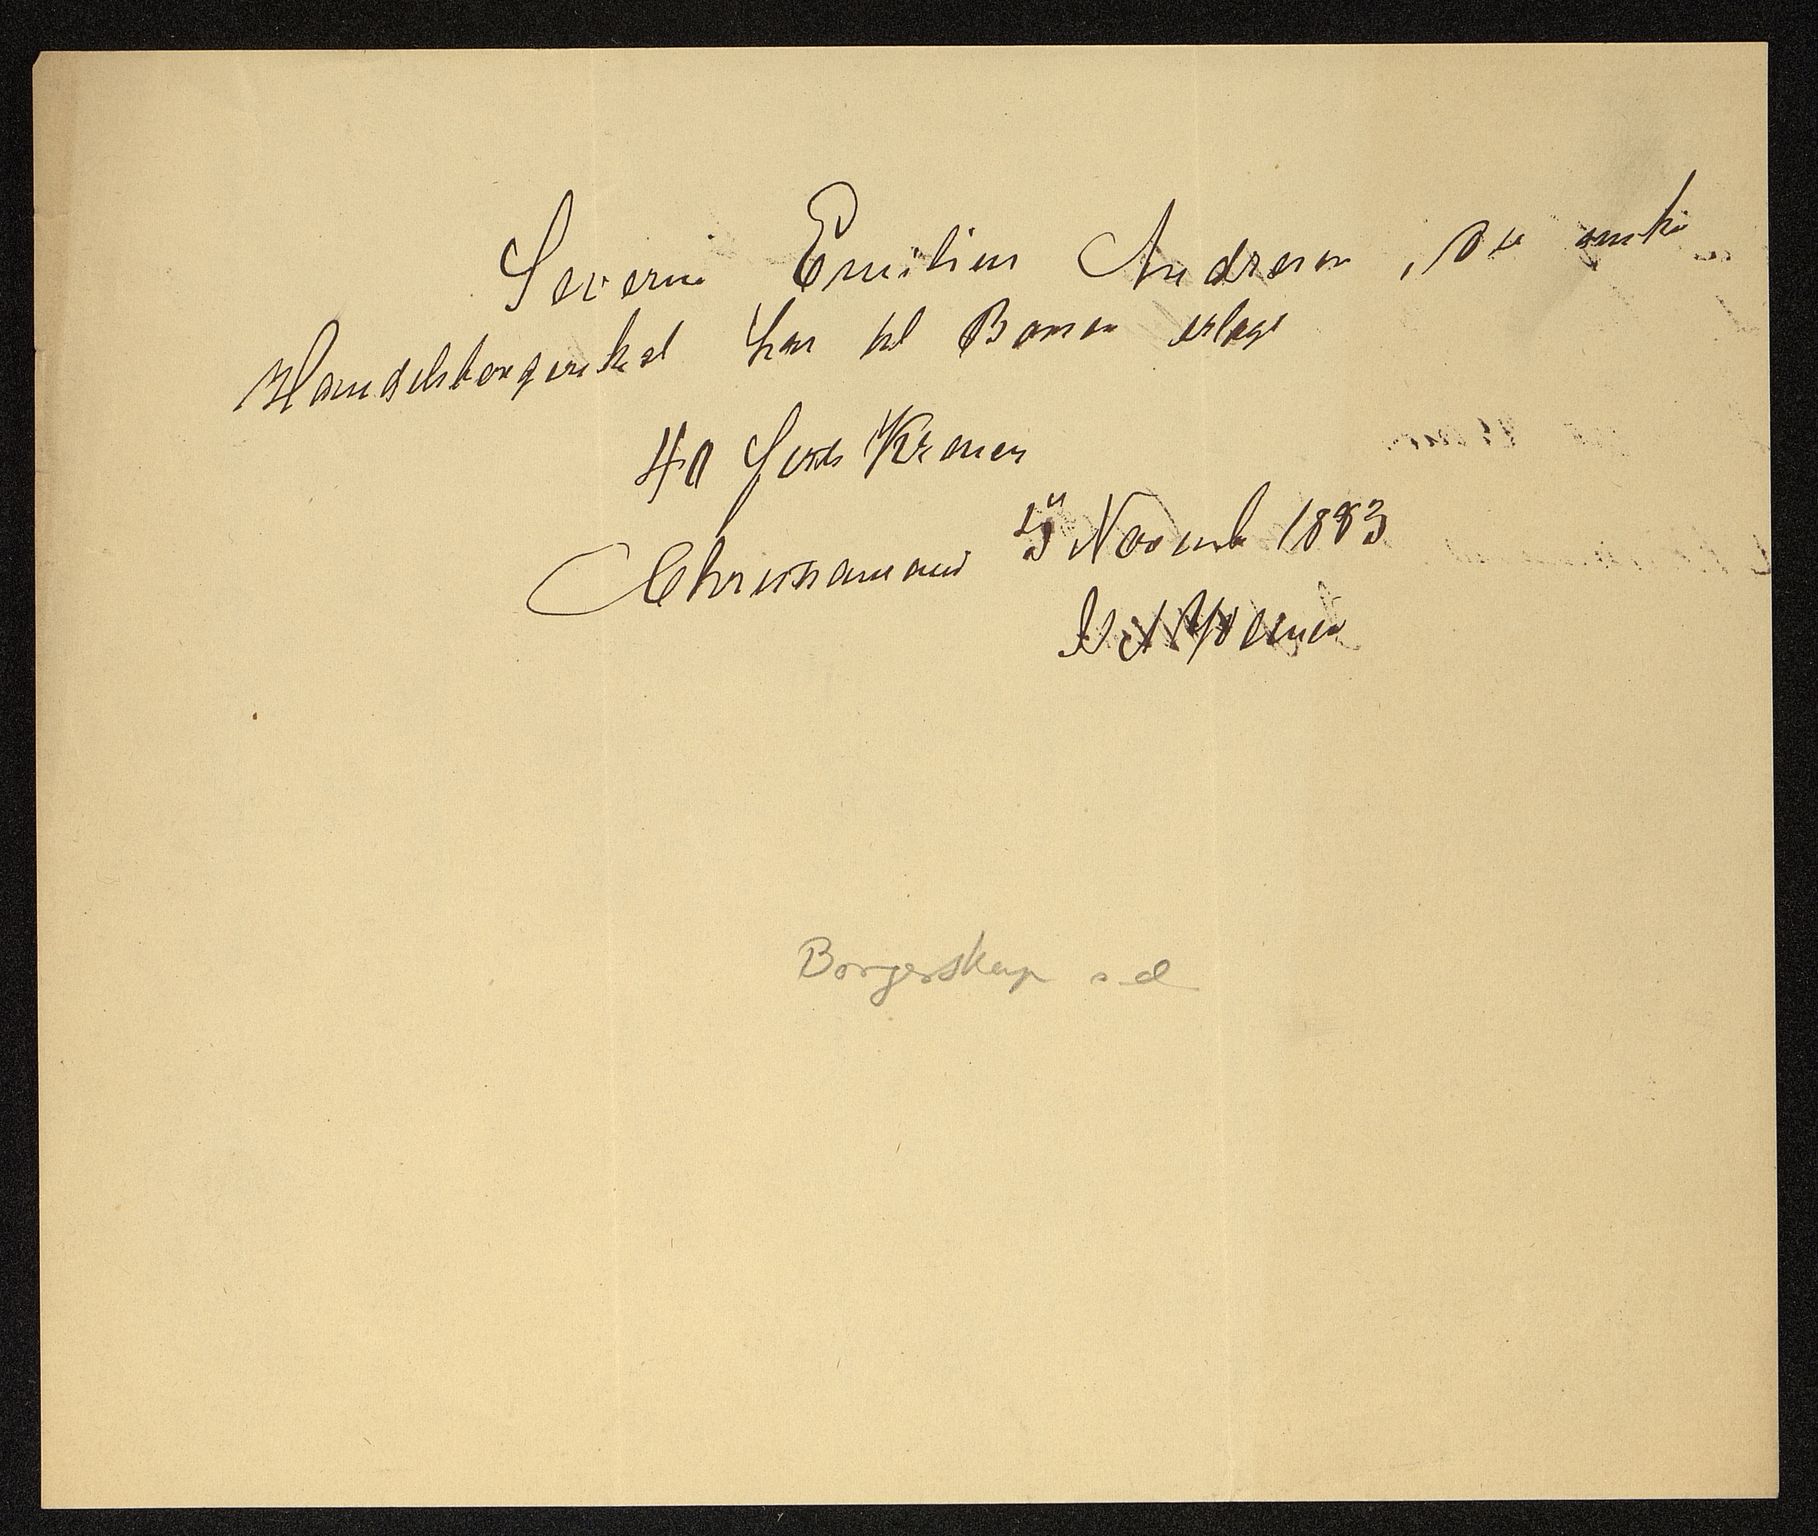 Severin Emilius Andresen, der ønsker
Handelsborgerskab har til Byen erlagt
40 Førti Kroner
Christiansand Novemb 1883
Borgerskap s.d